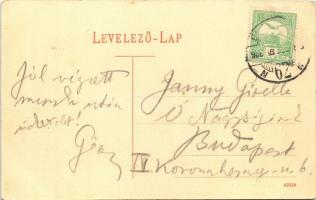 LEVELEZŐ-LAP
Jól végzett
munka után
üdvözöl!
Géza
Janny Gizella
Ő Nagyságának
Budapest
IV Koronaherceg-u. 6.